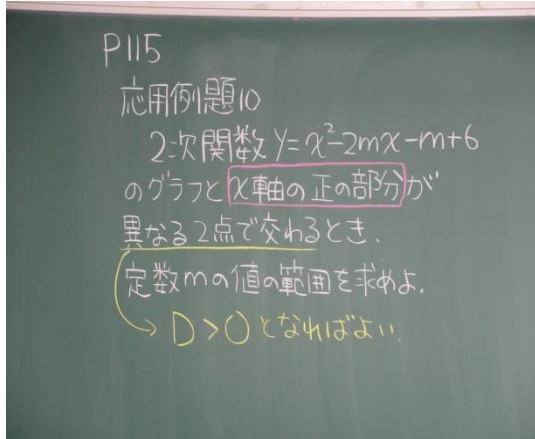 P115
応用例題10
2次関数 y=x²-2mx-m+6
のグラフと x軸の正の部分が
異なる2点で交わるとき、
定数mの値の範囲を求めよ.
D>0となればよい.